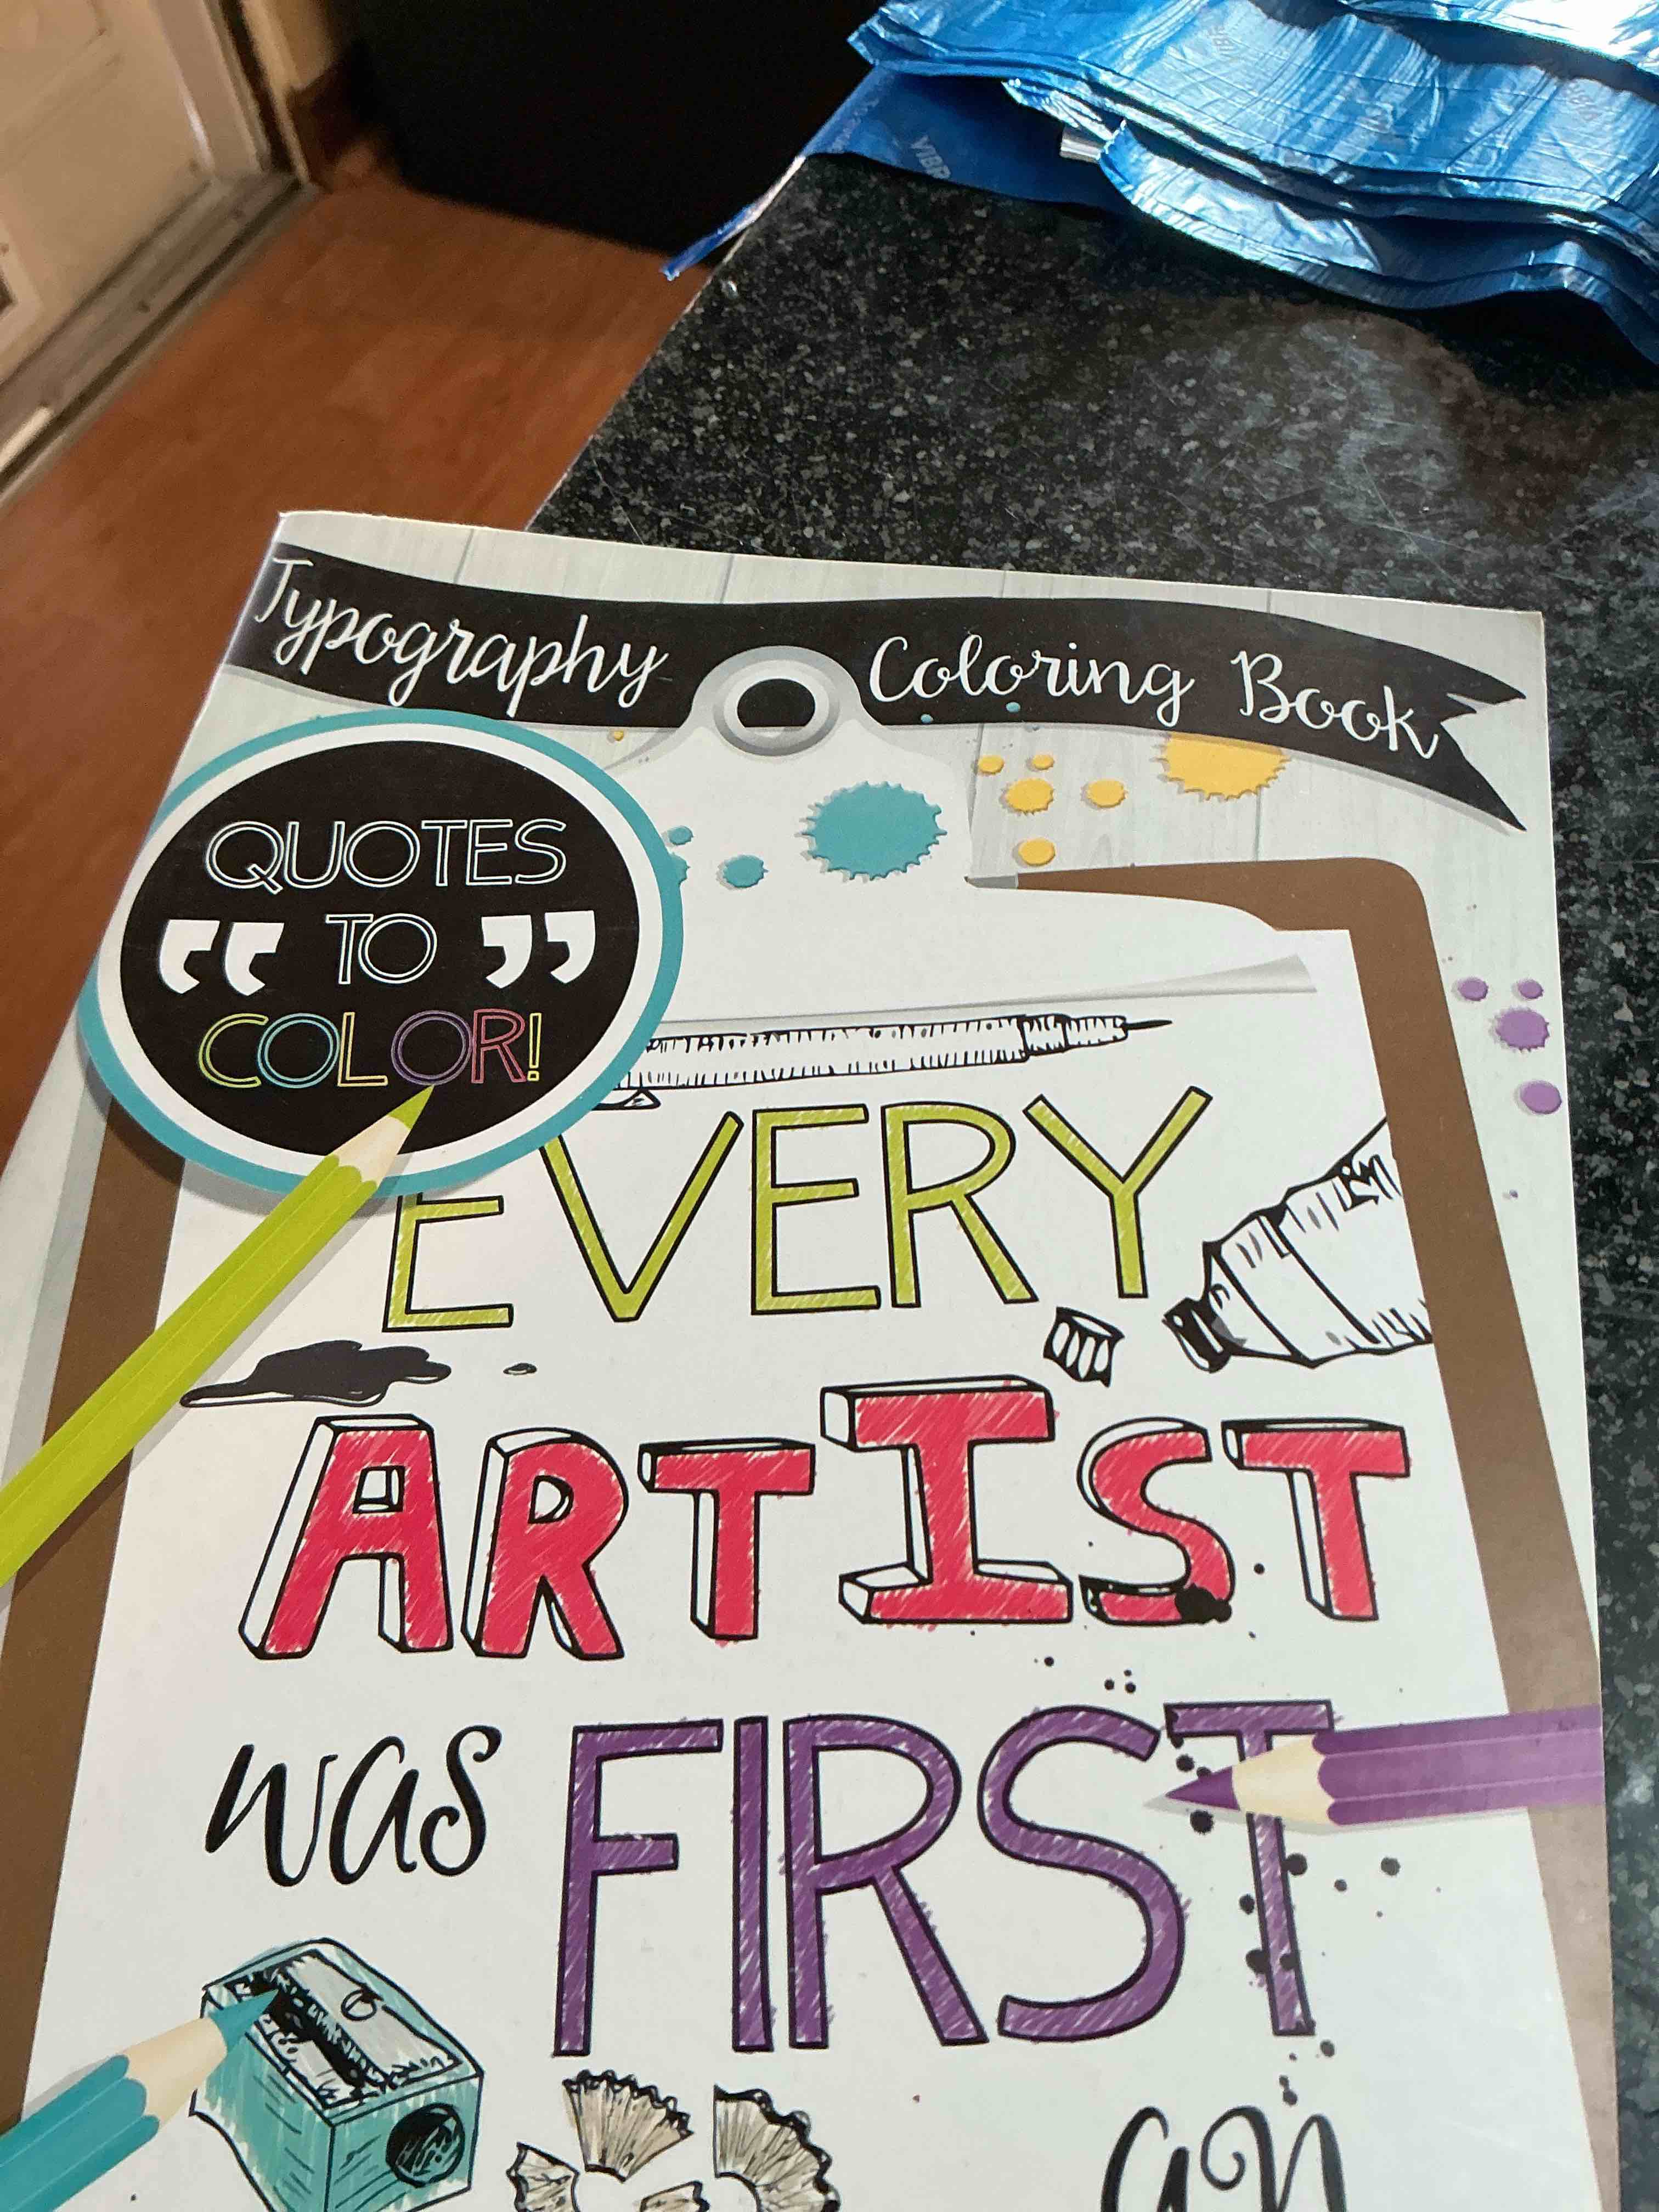 Typography Coloring Book
QUOTES
“ TO ”
COLOR!
EVERY
ARTIST
was FIRST
an